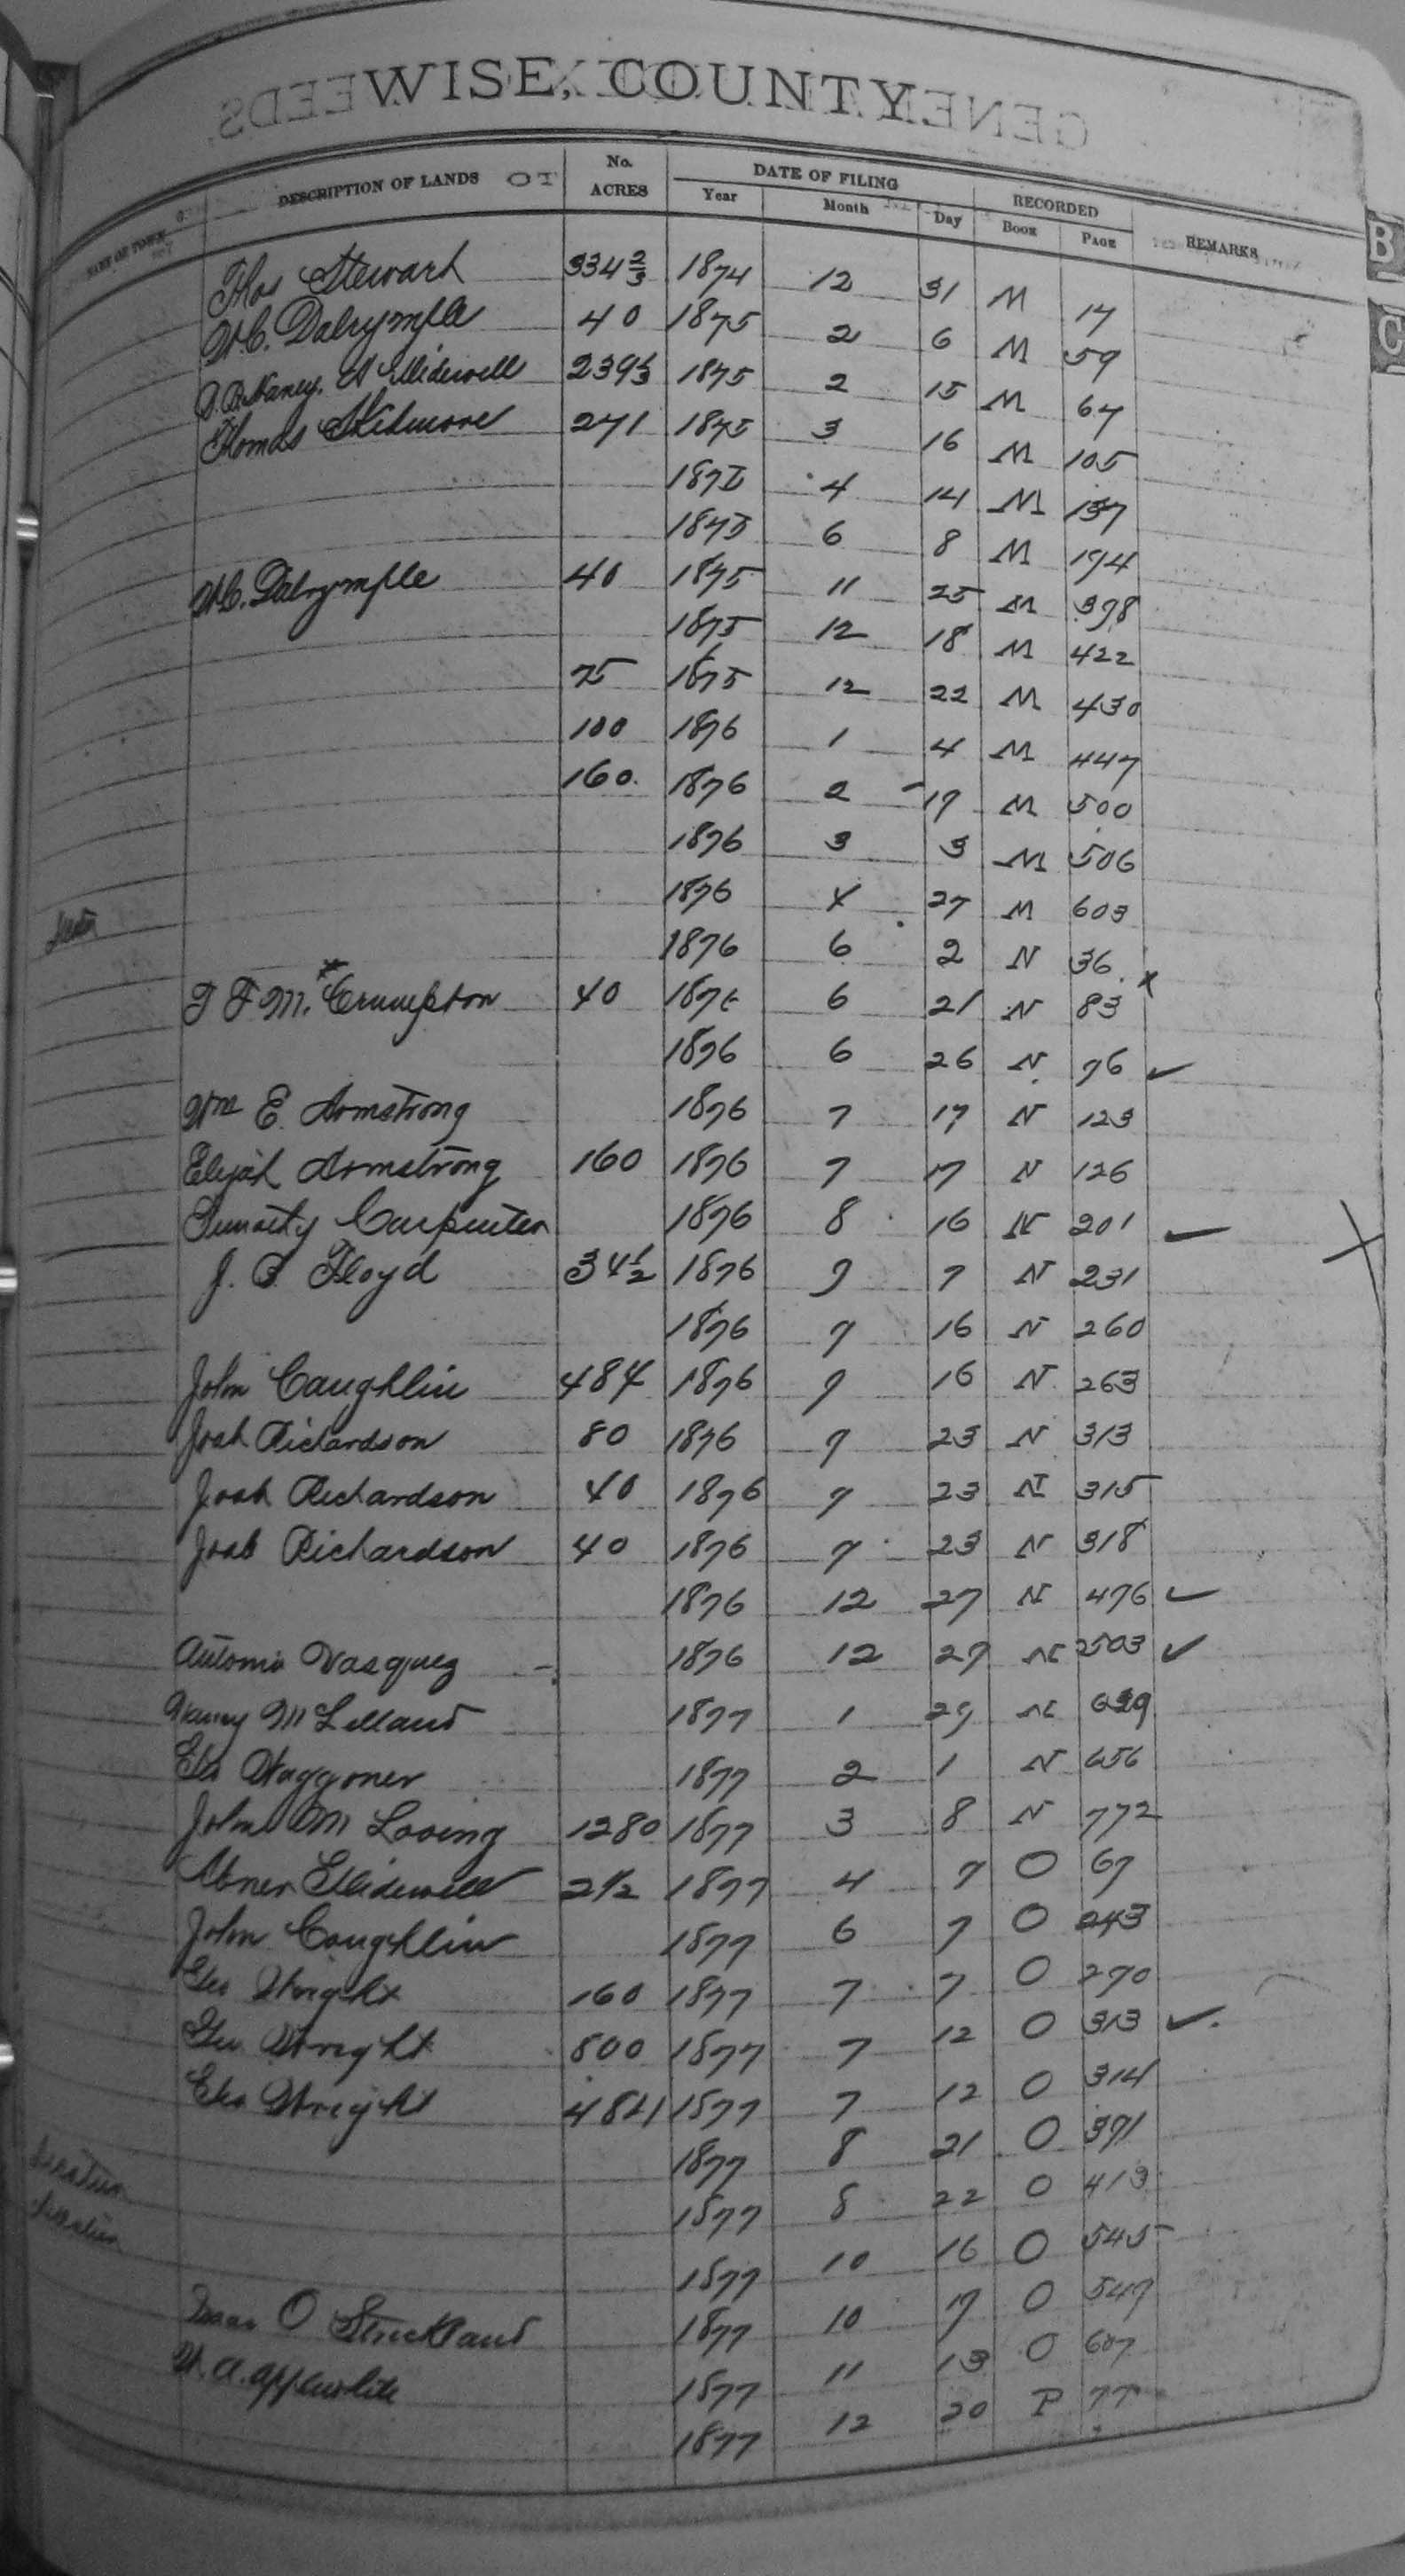 WISE, COUNTY
NAME OF TOWN DESCRIPTION OF LANDS No. ACRES DATE OF FILING Year Month Day RECORDED Book Page REMARKS
Thos Stewart 334 2/3 1874 12 31 M 17
W.C. Dalrymple 40 1875 2 6 M 59
239 1/3 1875 2 15 M 67
Thomas Skidmore 271 1875 3 16 M 105
1875 4 14 M 137
1875 6 8 M 194
W.C. Dalrymple 40 1875 11 25 M 398
1875 12 18 M 422
75 1875 12 22 M 430
100 1876 1 4 M 447
160 1876 2 19 M 500
1876 3 3 M 506
1876 4 27 M 603
1876 6 2 N 36 x
T F M. Crumpton 40 1876 6 21 N 83
1876 6 26 N 96 ✓
Wm E. Armstrong 1876 7 17 N 123
Elijah Armstrong 160 1876 7 17 N 126
Carpenter 1876 8 16 N 201 ✓
J. B. Floyd 34 1/2 1876 9 7 N 231
1876 9 16 N 260
John Caughlin 484 1876 9 16 N 263
Josh Richardson 80 1876 9 23 N 313
Josh Richardson 40 1876 9 23 N 315
Josh Richardson 40 1876 9 23 N 318
1876 12 27 N 476 ✓
Antonio Vasquez 1876 12 29 N 503 ✓
1877 1 29 N 629
Waggoner 1877 2 1 N 656
John M Loving 1280 1877 3 8 N 772
Abner 2 1/2 1877 4 9 O 67
John Coughlin 1877 6 7 O 243
Geo Wright 160 1877 7 7 O 270
Geo Wright 800 1877 7 12 O 313 ✓
Geo Wright 484 1877 7 12 O 314
1877 8 21 O 391
1877 8 22 O 413
1877 10 16 O 545
1877 10 17 O 547
O Strickland 1877 11 13 O 607
W. A. Applewhite 1877 12 20 P 77